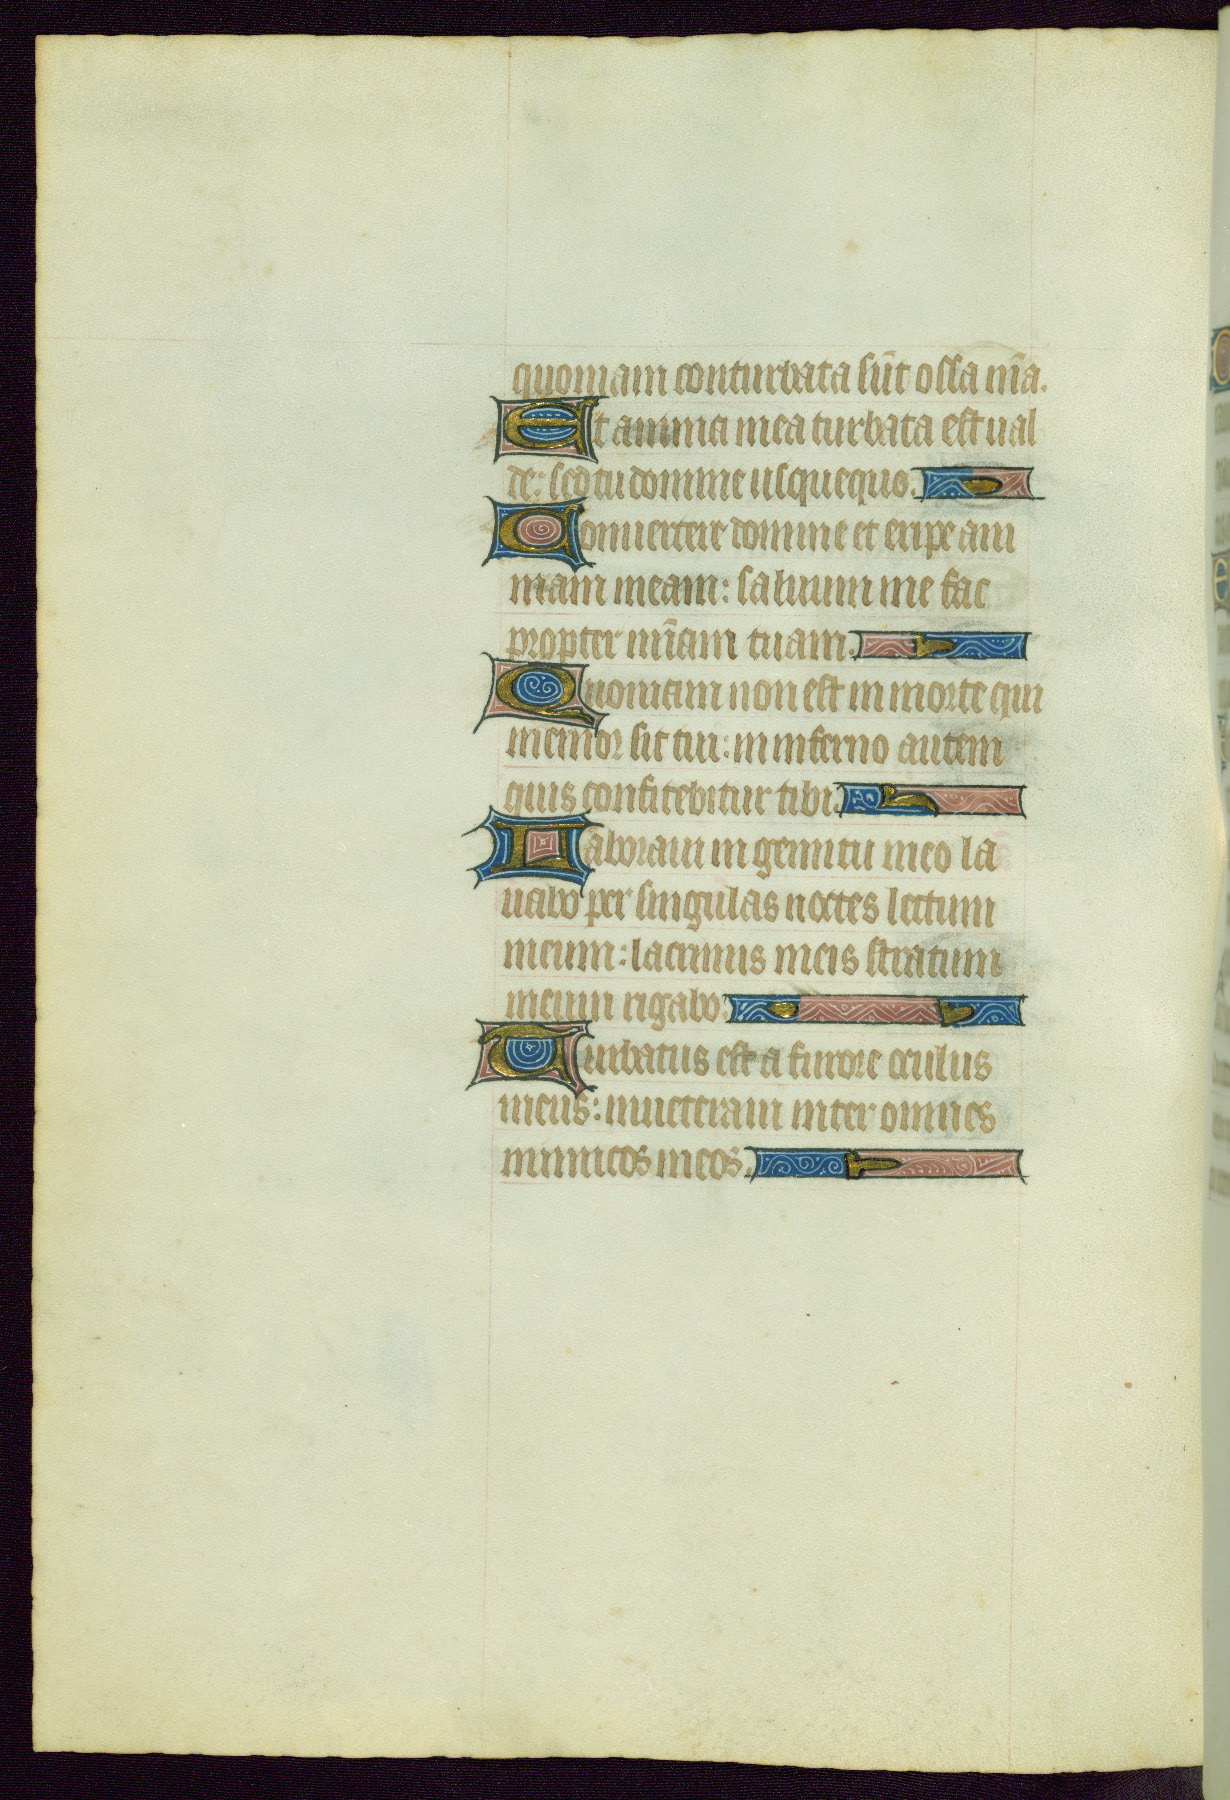 quoniam conturbata sūt ossa m̄a.
Et anima mea turbata est ual
de: sed tu domine usquequo.
Conuertere domine et eripe ani
mam meam: saluum me fac
propter m̄iam tuam.
Quoniam non est in morte qui
memor sit tui: in inferno autem
quis confitebitur tibi.
Laboraui in gemitu meo la
uabo per singulas noctes lectum
meum: lacrimis meis stratum
meum rigabo.
Turbatus est a furore oculus
meus: inueteraui inter omnes
inimicos meos.